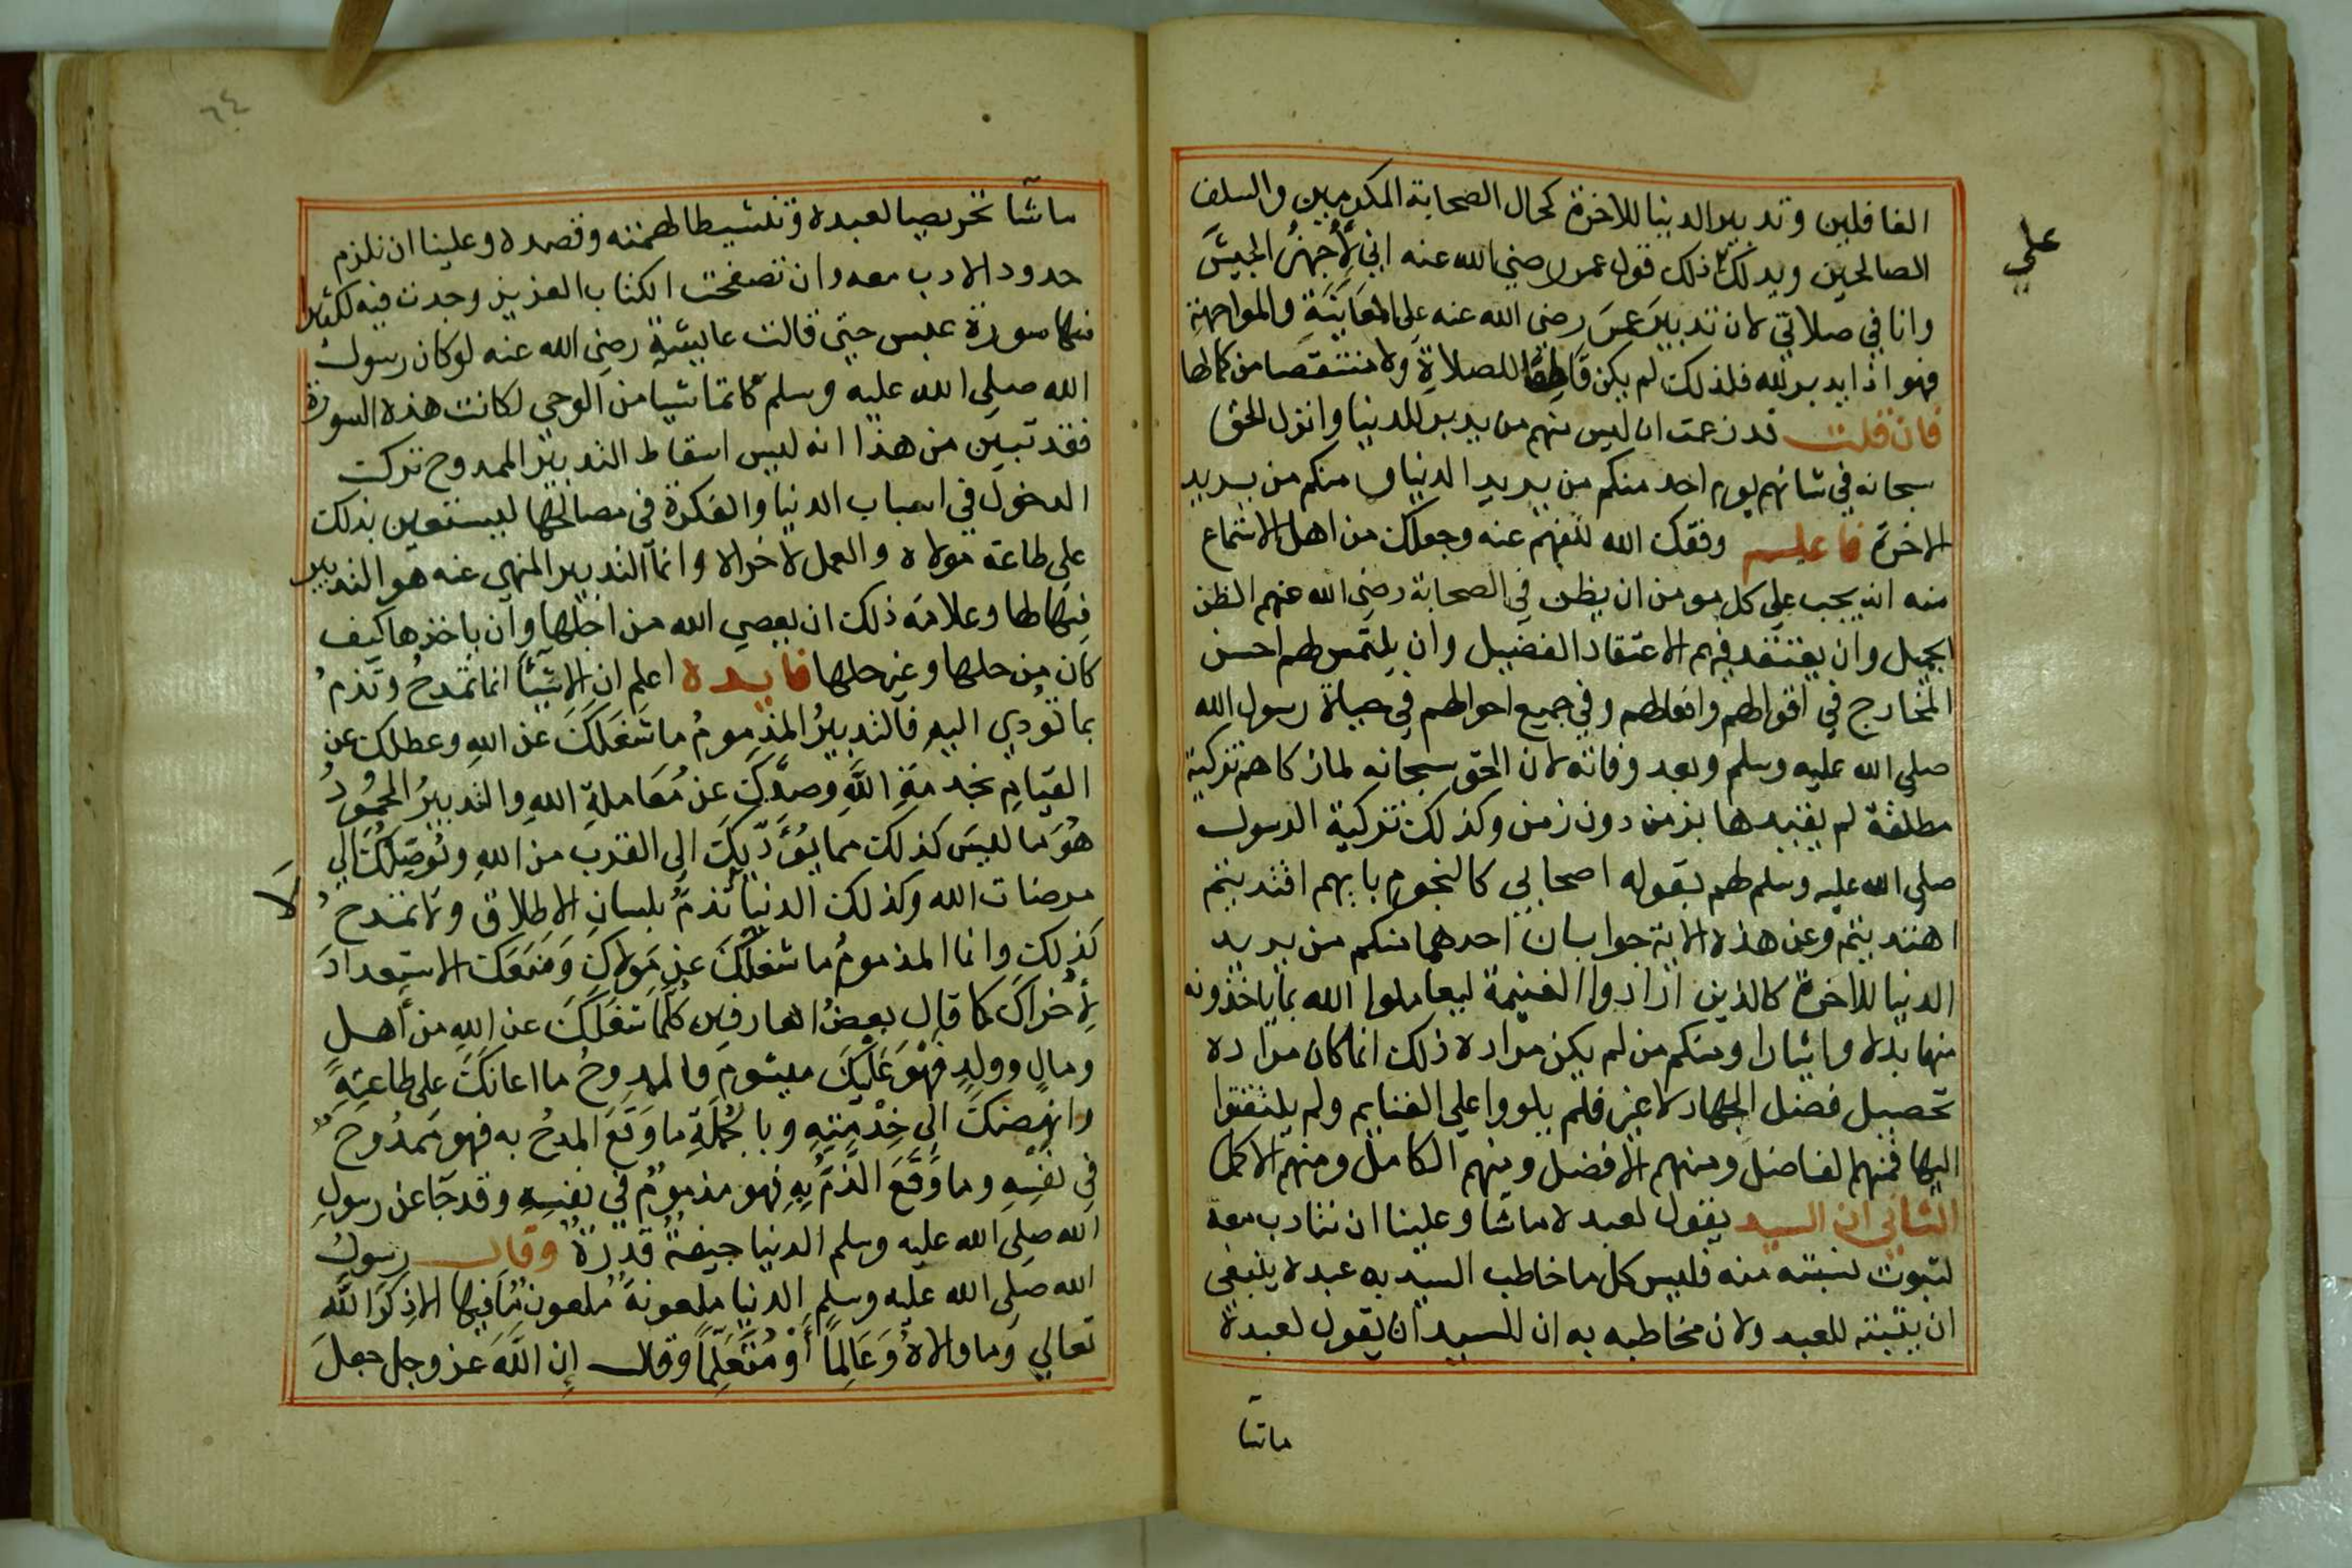 الغافلين وتدبير الدنيا للاخرة كحال الصحابة المكرمين والسلف
الصالحين ويدلك ذلك قول عمر رضي الله عنه اني لأجهز الجيش
علي
وانا في صلاتي لان تدبير عمر رضي الله عنه علي المعاينة والمواجهة
فهو اذا يدبر لله فلذلك لم يكن قاطعا للصلاة ولا منتقصا من كمالها
فان قلت قد زعمت ان ليس منهم من يدبر للدنيا وانزل الحق
سبحانه في شانهم يوم احد منكم من يريد الدنيا ومنكم من يريد
الاخرة فاعلم وفقك الله للفهم عنه وجعلك من اهل الاستماع
منه انه يجب علي كل مومن ان يظن في الصحابة رضي الله عنهم الظن
الجميل وان يعتقد فيهم الاعتقاد الفضيل وان يلتمس لهم احسن
المخارج في اقوالهم وافعالهم وفي جميع احوالهم في حياة رسول الله
صلي الله عليه وسلم وبعد وفاته لان الحق سبحانه لما زكاهم تزكية
مطلقة لم يقيدها بزمن دون زمن وكذلك تزكية الرسول
صلي الله عليه وسلم لهم بقوله اصحابي كالنجوم بايهم اقتديتم
اهتديتم وعن هذه الاية جوابان احدهما منكم من يريد
الدنيا للاخرة كالذين ارادوا الغنيمة ليعاملوا الله بما ياخذونه
منها بذلا وايثارا ومنكم من لم يكن مراده ذلك انما كان مراده
تحصيل فضل الجهاد لا غير فلم يلووا علي الغنايم ولم يلتفتوا
اليها فمنهم الفاضل ومنهم الافضل ومنهم الكامل ومنهم الاكمل
الثاني ان السيد يقول لعبده ماشا وعلينا ان نتادب معه
لثبوت نسبته منه فليس كل ما خاطب السيد به عبده ينبغي
ان يثبته للعبد ولان مخاطبه به ان للسيد ان يقول لعبده
ماشا
٦٤
ماشا تحريصا لعبده وتنشيطا لهمته وقصده وعلينا ان نلزم
حدود الادب معه وان تصفحت الكتاب العزيز وجدت فيه لكثير
منها سورة عبس حتي قالت عايشة رضي الله عنه لوكان رسول
الله صلي الله عليه وسلم كاتما شيا من الوحي لكانت هذه السورة
فقد تبين من هذا انه ليس اسقاط التدبير الممدوح تركت
الدخول في اسباب الدنيا والفكرة في مصالحها ليستعين بذلك
علي طاعة مولاه والعمل لاخراه وانما التدبير المنهي عنه هو التدبير
فيها لها وعلامة ذلك ان يعصي الله من اجلها وان ياخذها كيف
كان من حلها وغير حلها فايدة اعلم ان الاشيا انما تمدح وتذم
بما تودي اليه فالتدبير المذموم ما شغلك عن الله وعطلك عن
القيام بخدمة الله وصدك عن معاملة الله والتدبير المحمود
هو ما ليس كذلك مما يؤديك الي القرب من الله وتوصلك الي
مرضات الله وكذلك الدنيا تذم بلسان الاطلاق ولا تمدح
لا
كذلك وانما المذموم ما شغلك عن مولاك ومنعك الاستعداد
لأخراك كما قال بعض العارفين كلما شغلك عن الله من أهل
ومال وولد فهو عليك ميشوم والممدوح ما اعانك علي طاعته
وانهضك الي خدمته وبالجملة ما وقع المدح به فهو ممدوح
في نفسه وما وقع الذم به فهو مذموم في نفسه وقد جا عن رسول
الله صلي الله عليه وسلم الدنيا جيفة قذرة وقال رسول
الله صلي الله عليه وسلم الدنيا ملعونة ملعون ما فيها الا ذكر الله
تعالي وما والاه وعالما أو متعلما وقال إن الله عز وجل جعل